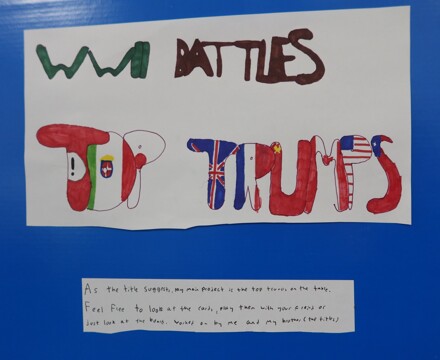 WWII BATTLES
TOP TRUMPS
As the title suggests, my main project is the top trumps on the table.
Feel free to look at the cards, play them with your friends or
Just look at the Battles. Worked on by me and my brother (the titles)